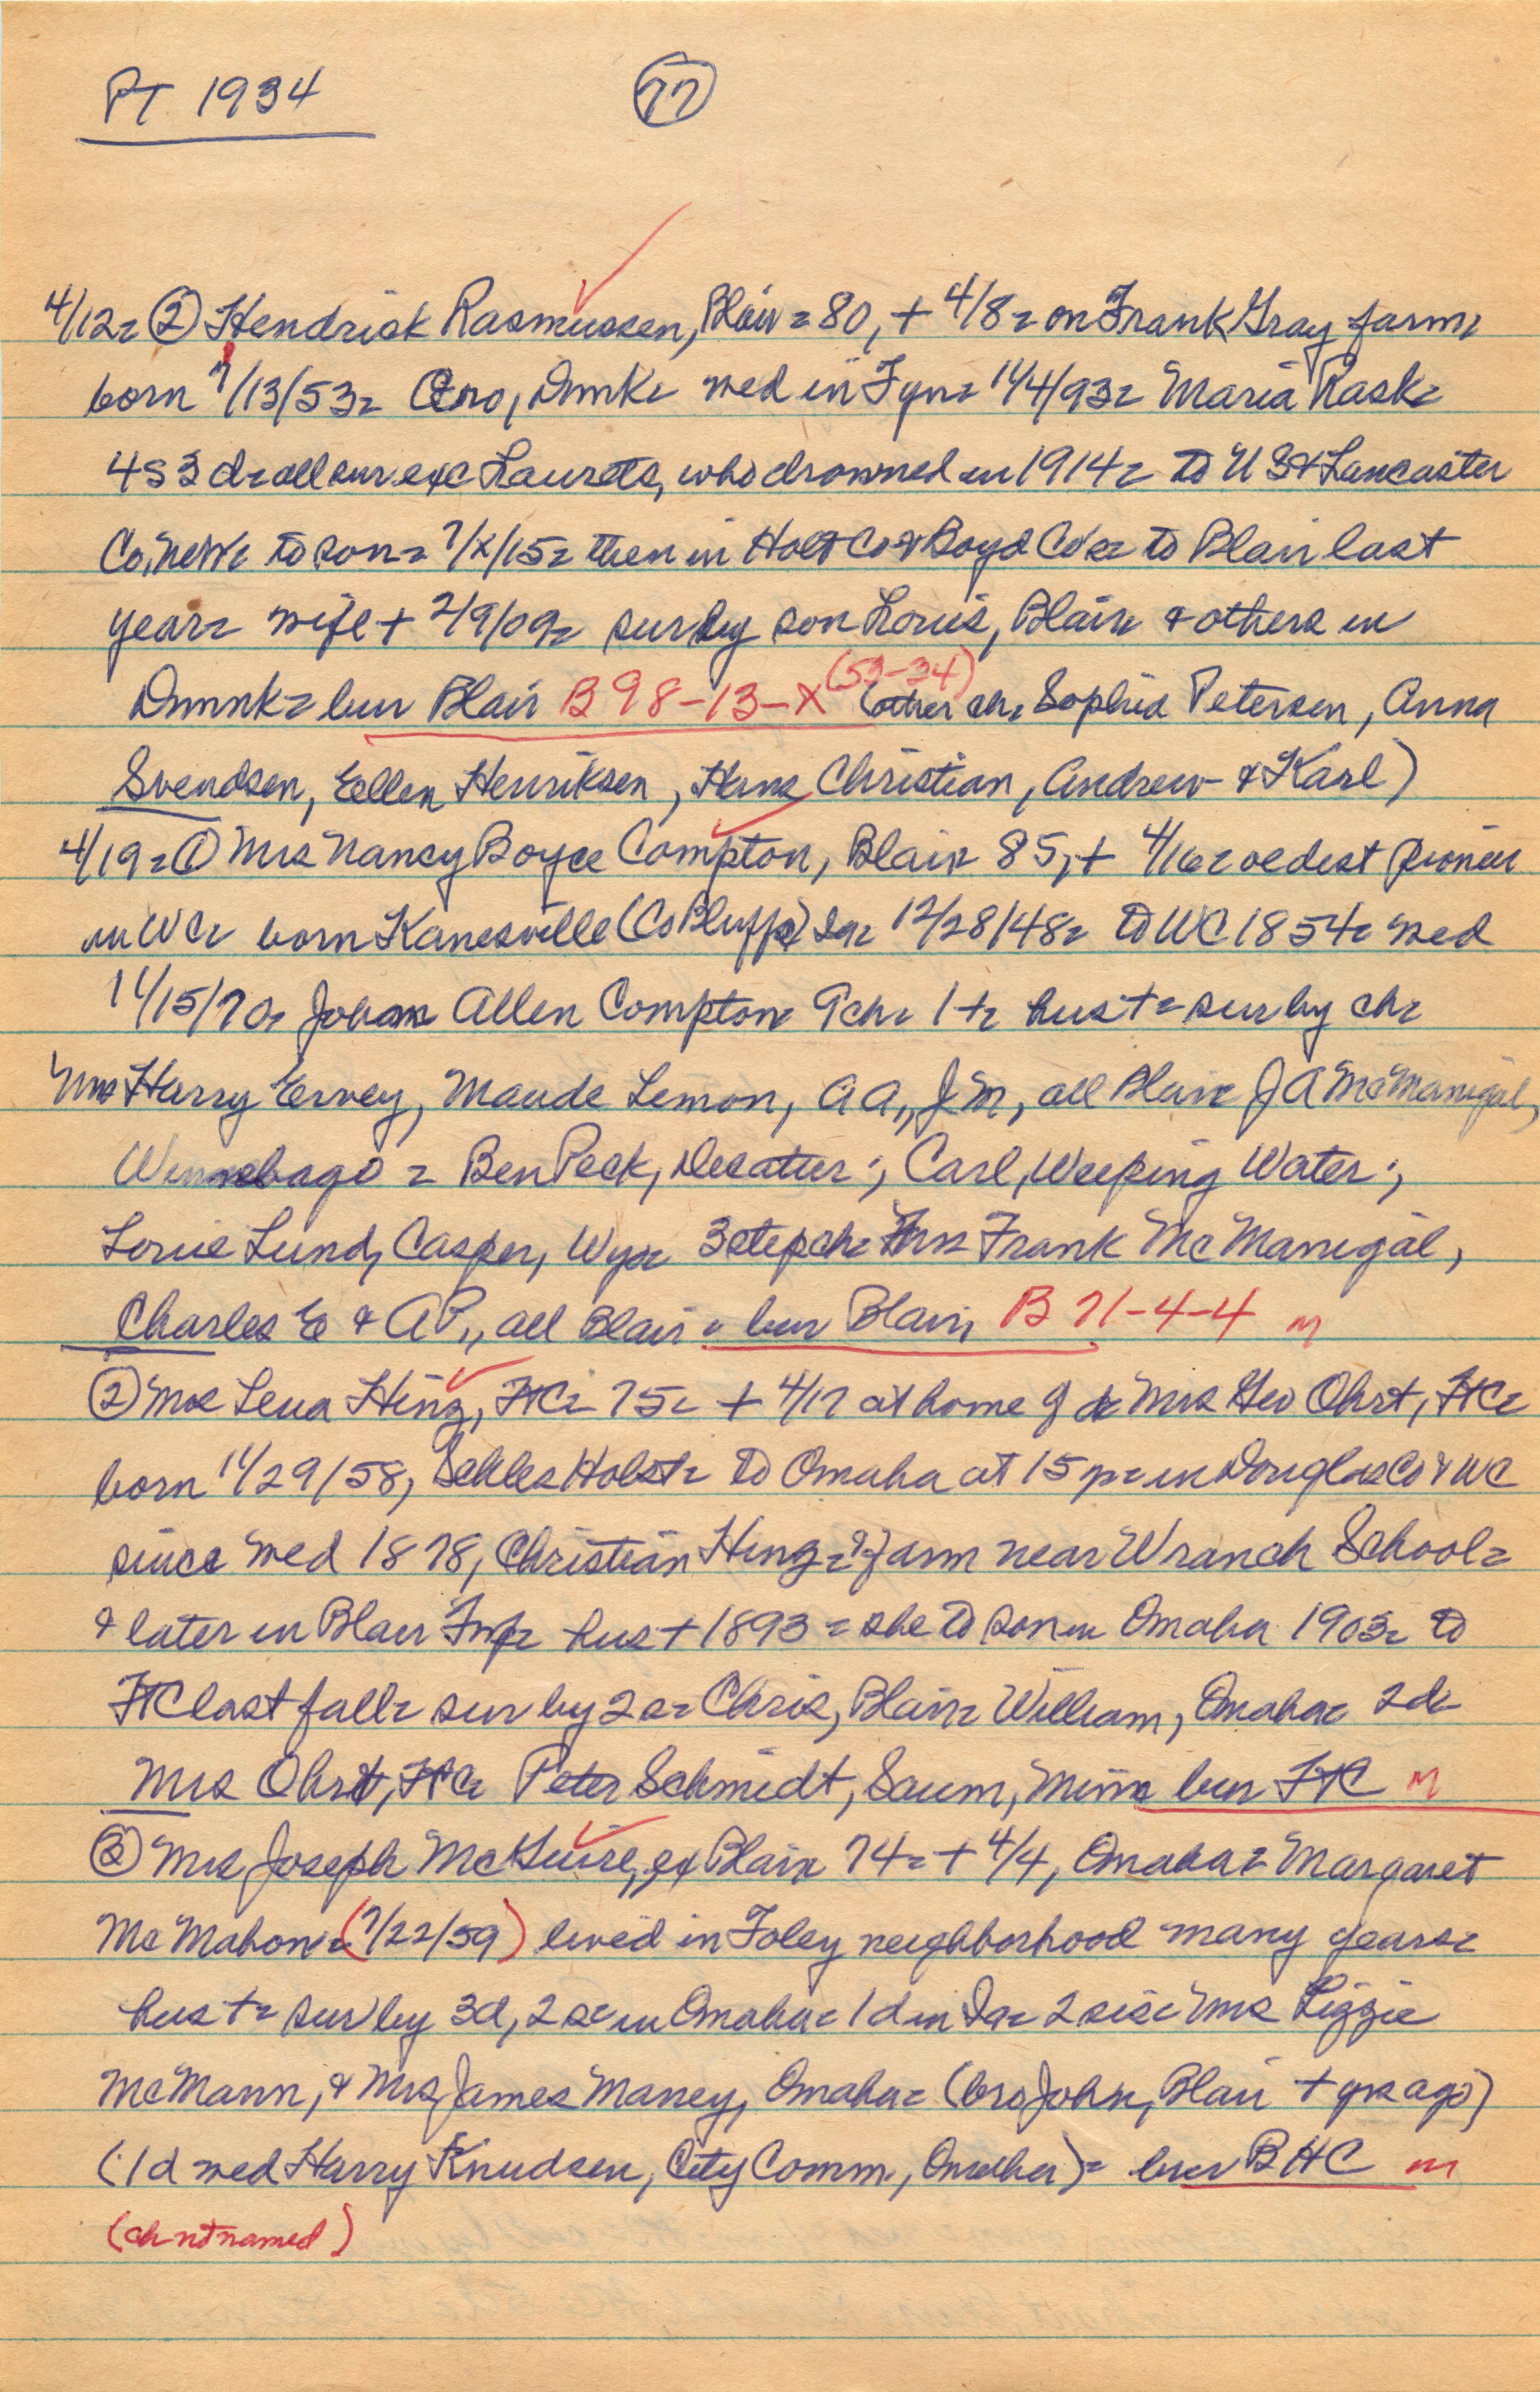 PT 1934 77
4/12= ② Hendrick Rasmussen, Blair = 80, + 4/8 = on Frank Gray farm=
born 7/13/53= Oro, Dnmk= med in Fyn= 11/4/93= Maria Rask=
4s 3d= all sur exc Laurets, who drowned in 1914= to US & Lancaster
Co, Neb= to son= ?/x/15= then in Holt Co & Boyd Co's= to Blair last
year= wife + 2/9/09= sur by son Louis, Blair= & others in
Dnmk= bur Blair B 98-13-X (53-34) (other ch= Sophia Petersen, Anna
Svendsen, Eellen Henriksen, Hans Christian, Andrew & Karl)
4/19= ① Mrs Nancy Boyce Compton, Blair= 85, + 4/16= oldest pioneer
in WC= born Kanesville (Co Bluffs) Ia= 12/28/48= to WC 1854= med
11/15/70= John Allen Compton= 9ch= 1+= hus += sur by ch=
Mrs Harry Ervey, Maude Lemon, AA, JM, all Blair= JA McManigal,
Winnebago = Ben Peck, Decatur;, Carl, Weeping Water;,
Louie Lund, Casper, Wyo= 3stepch= Mrs Frank McManigal,
Charles E & AP, all Blair= bur Blair, B 71-4-4 m
② Mrs Lena Hinz, FtC= 75= + 4/17 at home of d= Mrs Geo Ohrt, FtC=
born 11/29/58, Schles Holst= to Omaha at 15 yr= in Douglas Co & WC
since med 1878, Christian Hinz= ? farm near Wranch School=
& later in Blair Twp= hus + 1893 = she to son in Omaha 1903= to
FtC last fall= sur by 2s= Chris, Blair= William, Omaha= 2d=
Mrs Ohrt, FtC= Peter Schmidt, Saum, Minn= bur FtC m
③ Mrs Joseph McGuire, ex Blair= 74= + 4/4, Omaha= Margaret
McMahon= (7/22/59) lived in Foley neighborhood many years=
hus += sur by 3d, 2s= in Omaha= 1d in Ia= 2 sis= Mrs Lizzie
McMann, & Mrs James Maney, Omaha= (bro John, Blair + yrs ago)
(1d med Harry Knudsen, City Comm, Omaha)= bur BHC m
(ch nt named)